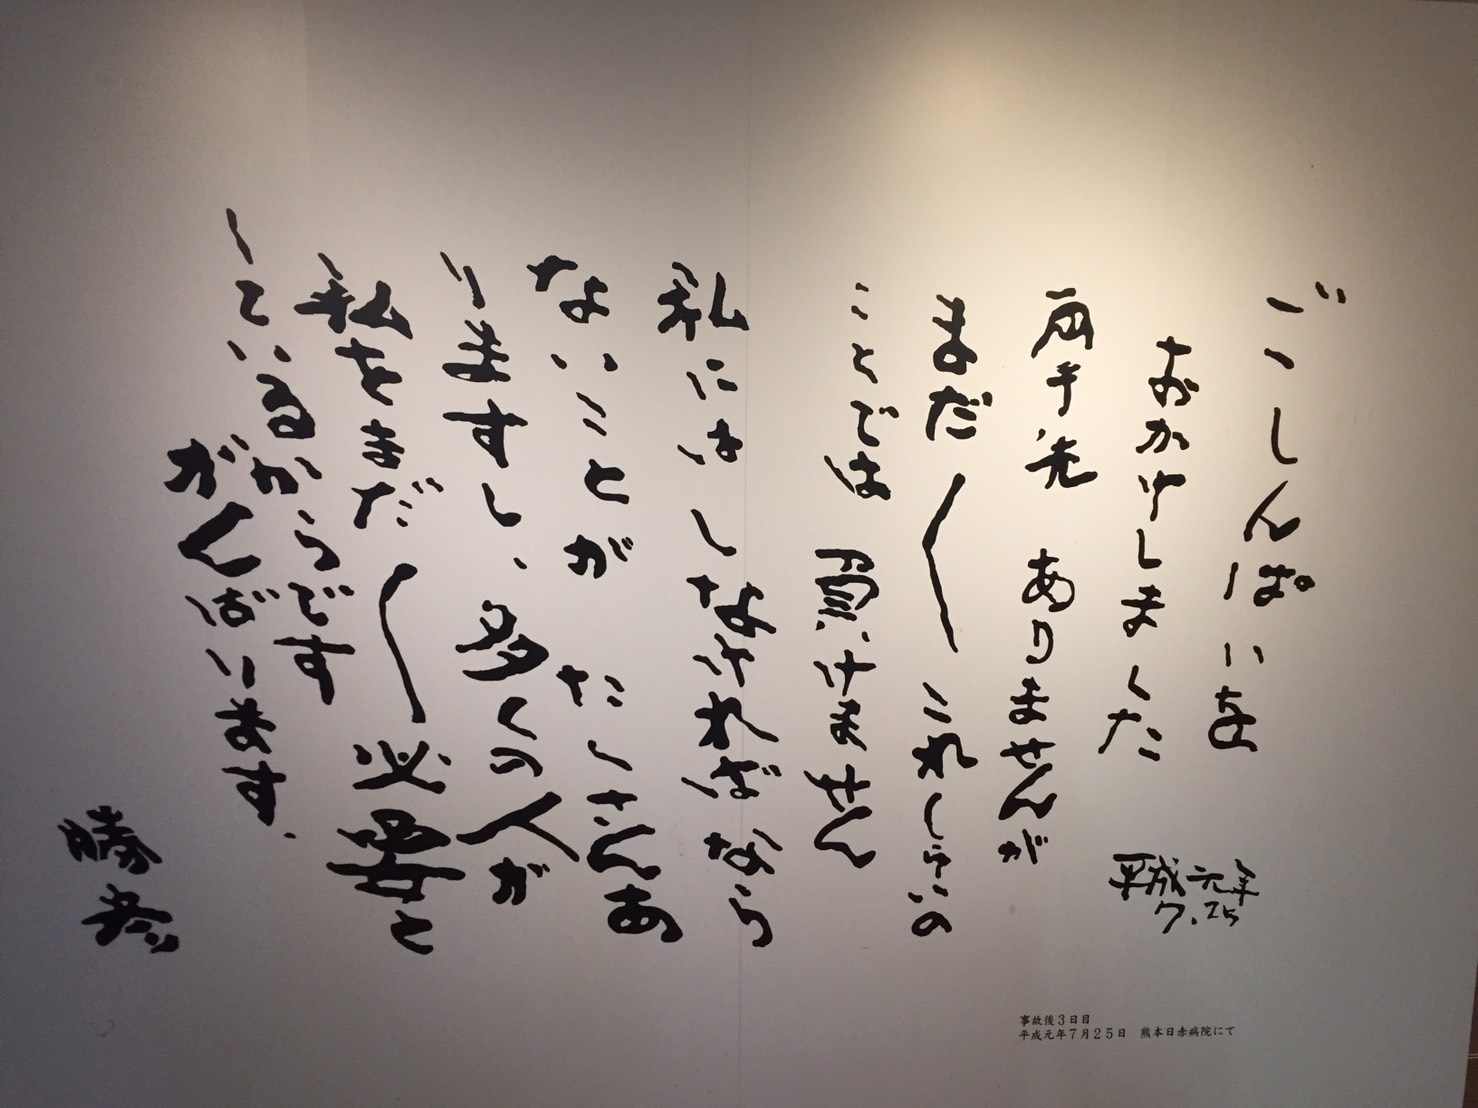 ごしんぱいを
おかけしました
両手先 ありませんが
まだ〱 これくらいの
ことでは 負けません
私には しなければなら
ないことが たくさんあ
りますし、多くの人が
私をまだ〱必要と
しているからです
がんばります.
勝彦
平成元年
7.25
事故後3日目
平成元年7月25日 熊本日赤病院にて